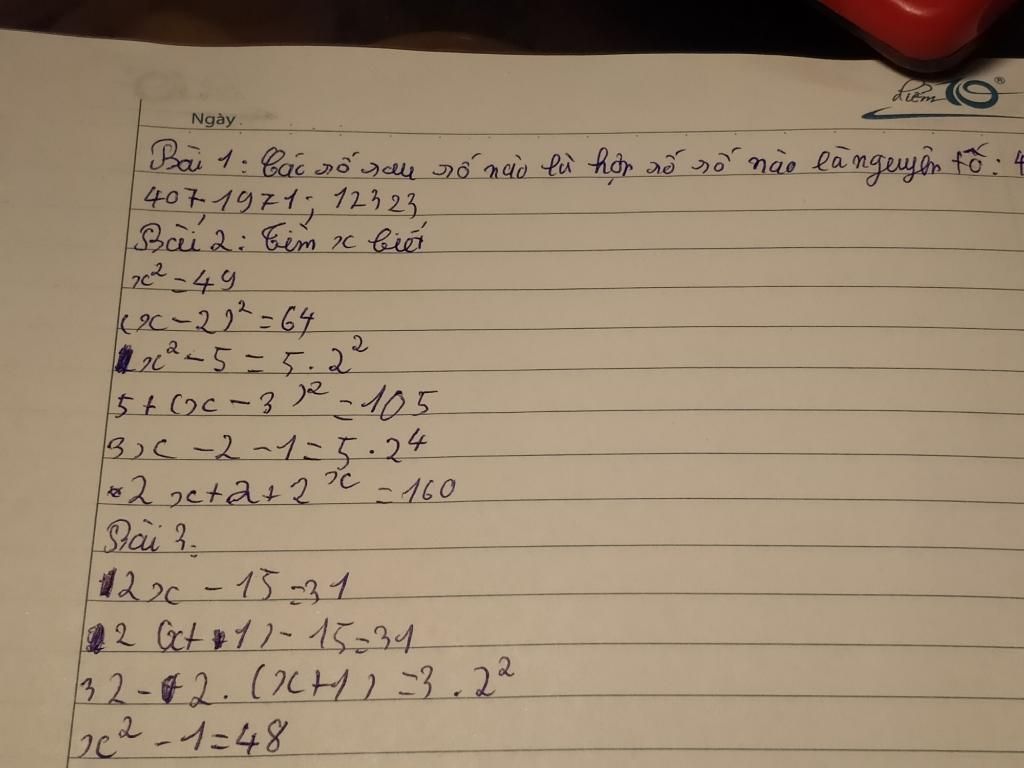 điểm 10®
Ngày
Bài 1: Các số sau số nào là hợp số số nào là nguyên tố: 4
407, 1971; 12323
Bài 2: Tìm x biết
x² = 49
(x - 2)² = 64
x² - 5 = 5 . 2²
5 + (x - 3)² = 105
3x - 2 - 1 = 5 . 2⁴
2x + 2 + 2ˣ = 160
Bài 3:
2x - 15 = 31
2 (x + 1) - 15 = 31
32 - 2 . (x + 1) = 3 . 2²
x² - 1 = 48